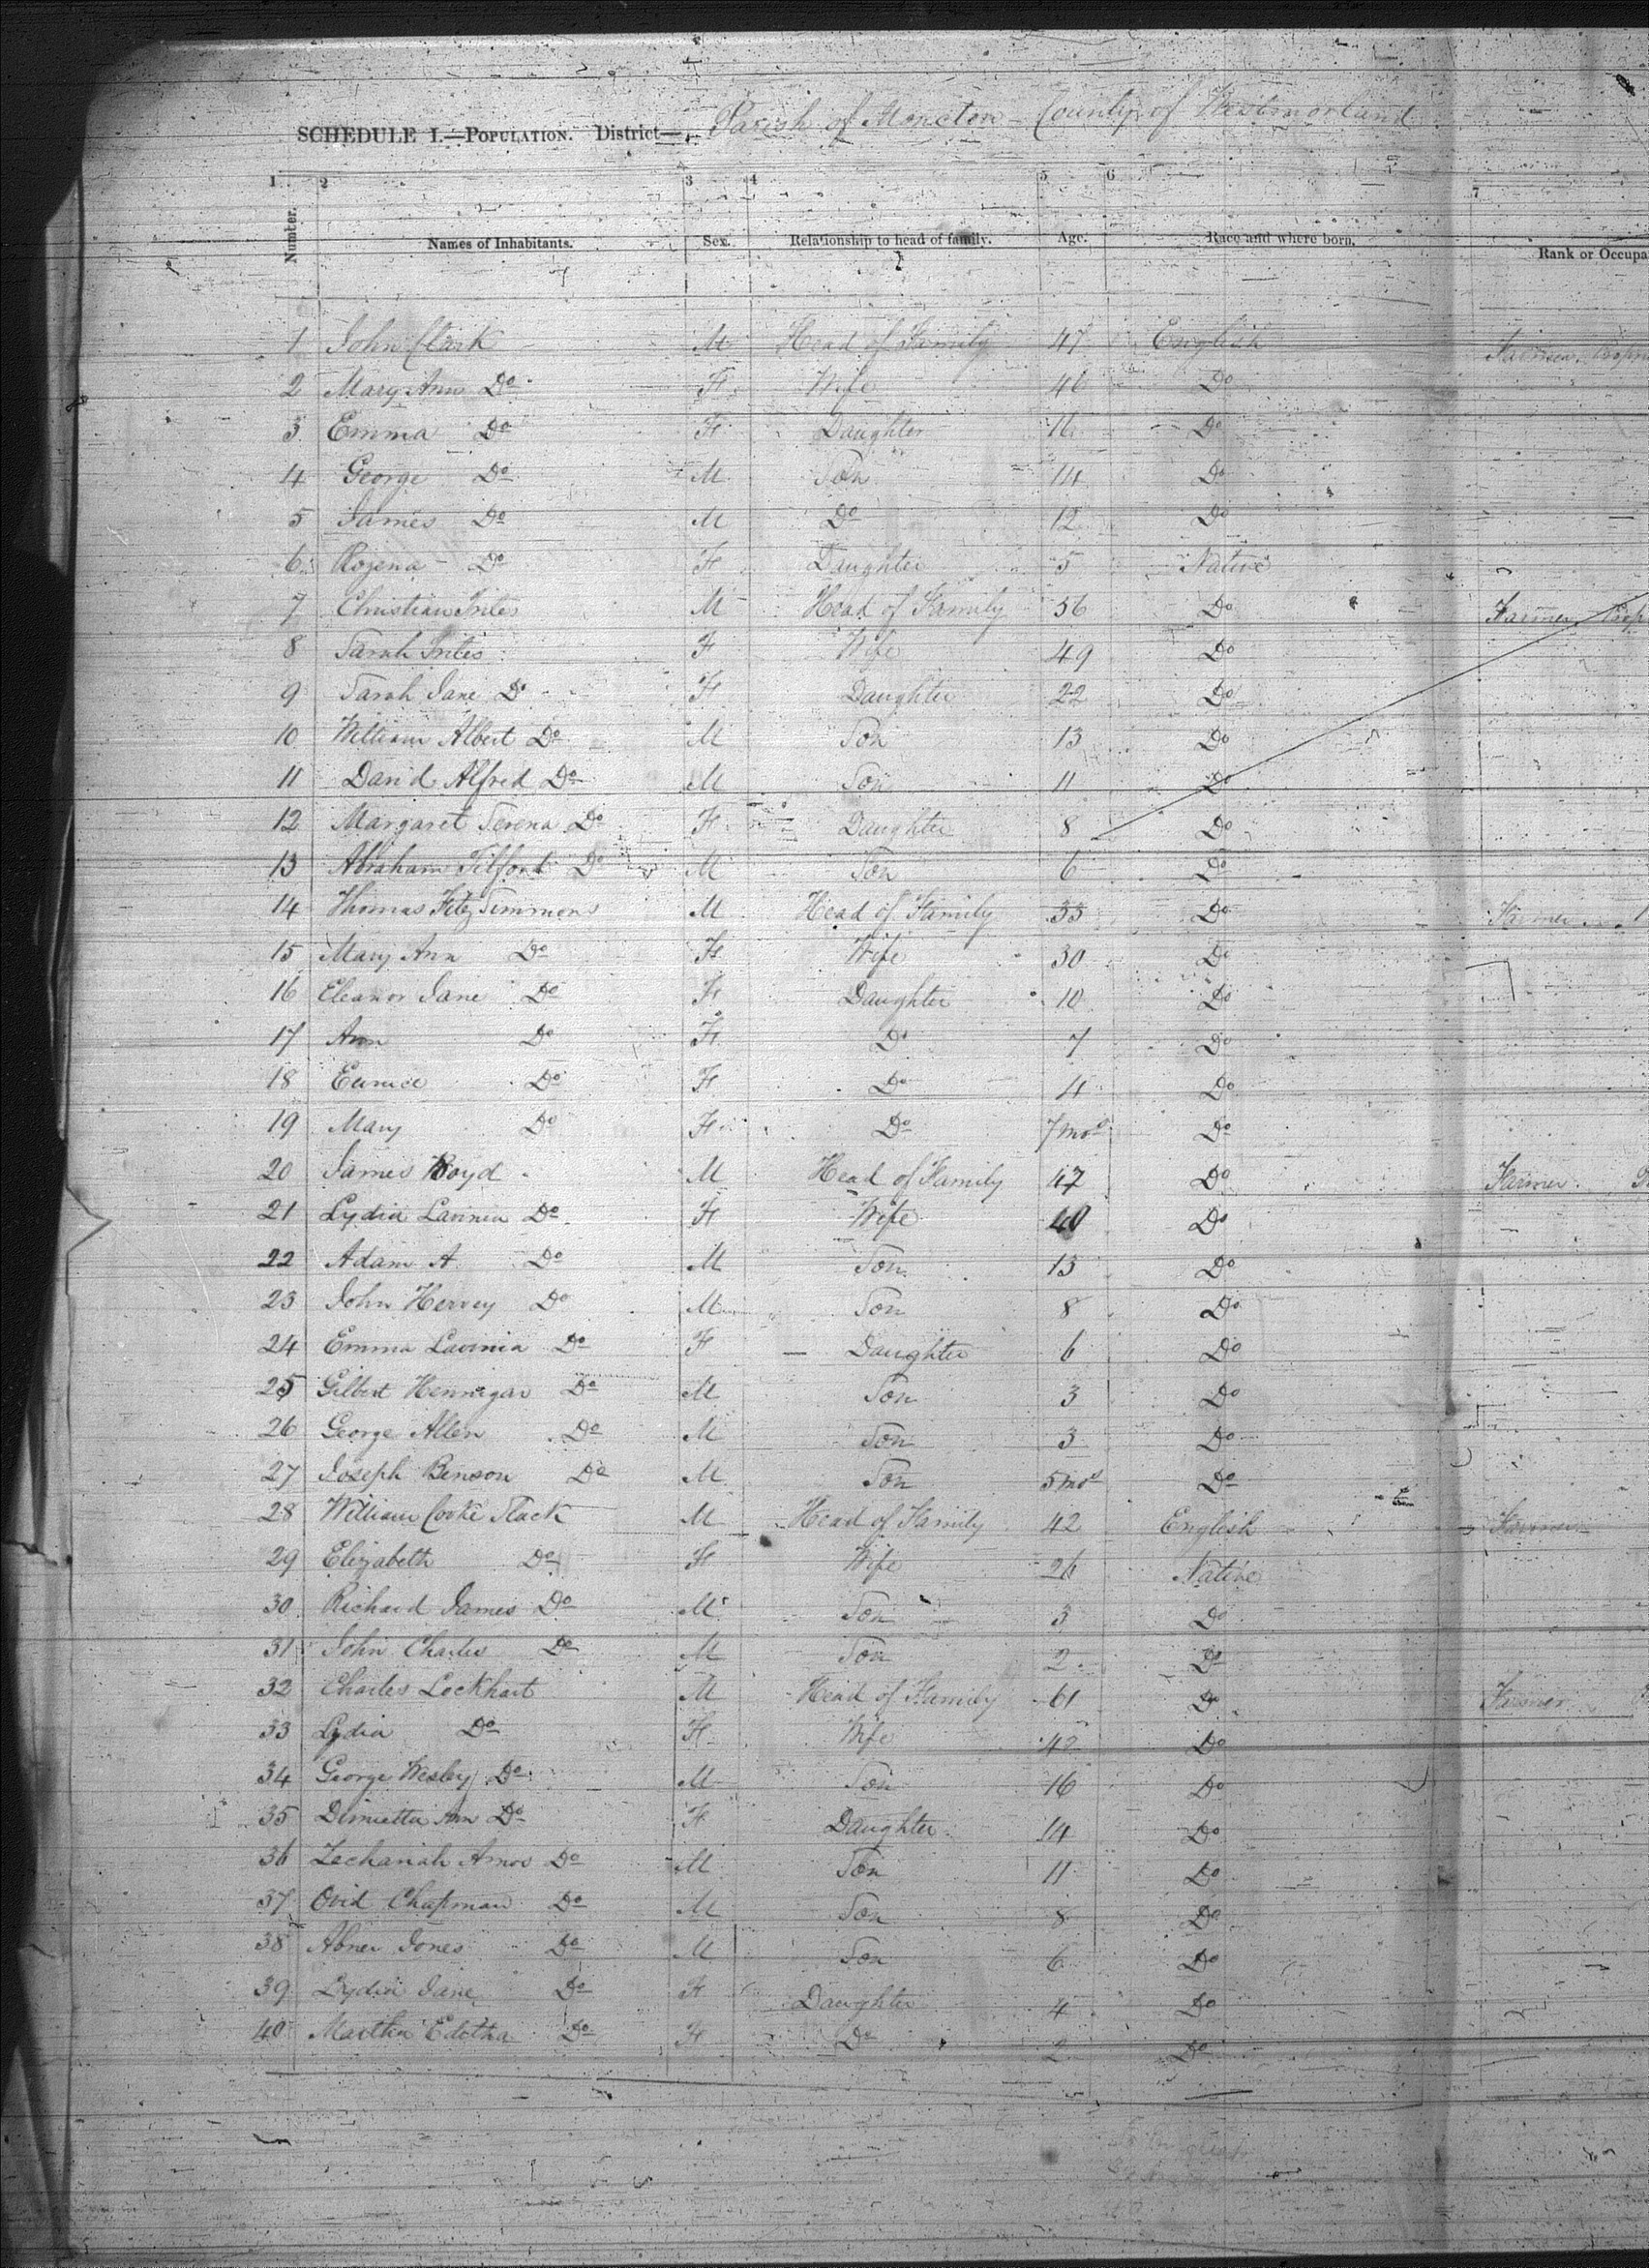 SCHEDULE I.—POPULATION. District— Parish of Moncton – County of Westmorland
1 2 3 4 5 6 7
Number. Names of Inhabitants. Sex. Relationship to head of family. Age. Race and where born. Rank or Occupa
1 John Clark M Head of Family 47 English Farmer
2 Mary Ann Do F Wife 46 Do
3 Emma Do F Daughter 16 Do
4 George Do M Son 14 Do
5 James Do M Do 12 Do
6 Rozena Do F Daughter 5 Native
7 Christian Trites M Head of Family 56 Do Farmer
8 Sarah Trites F Wife 49 Do
9 Sarah Jane Do F Daughter 22 Do
10 William Albert Do M Son 13 Do
11 David Alfred Do M Son 11 Do
12 Margaret Serena Do F Daughter 8 Do
13 Abraham Tilford Do M Son 6 Do
14 Thomas FitzSimmons M Head of Family 33 Do Farmer
15 Mary Ann Do F Wife 30 Do
16 Eleanor Jane Do F Daughter 10 Do
17 Ann Do F Do 7 Do
18 Eunice Do F Do 4 Do
19 Mary Do F Do 7 mos Do
20 James Boyd M Head of Family 47 Do Farmer
21 Lydia Lavinia Do F Wife 40 Do
22 Adam A Do M Son 13 Do
23 John Hervey Do M Son 8 Do
24 Emma Lavinia Do F Daughter 6 Do
25 Gilbert Hennigar Do M Son 3 Do
26 George Allen Do M Son 3 Do
27 Joseph Benson Do M Son 5 mos Do
28 William Cooke Slack M Head of Family 42 English Farmer
29 Elizabeth Do F Wife 26 Native
30 Richard James Do M Son 3 Do
31 John Charles Do M Son 2 Do
32 Charles Lockhart M Head of Family 61 Do Farmer
33 Lydia Do F Wife 42 Do
34 George Wesley Do M Son 16 Do
35 Ann Do F Daughter 14 Do
36 Zechariah Amos Do M Son 11 Do
37 Ovid Chapman Do M Son 8 Do
38 Abner Jones Do M Son 6 Do
39 Lydia Jane Do F Daughter 4 Do
40 Martha Editha Do F Do 2 Do